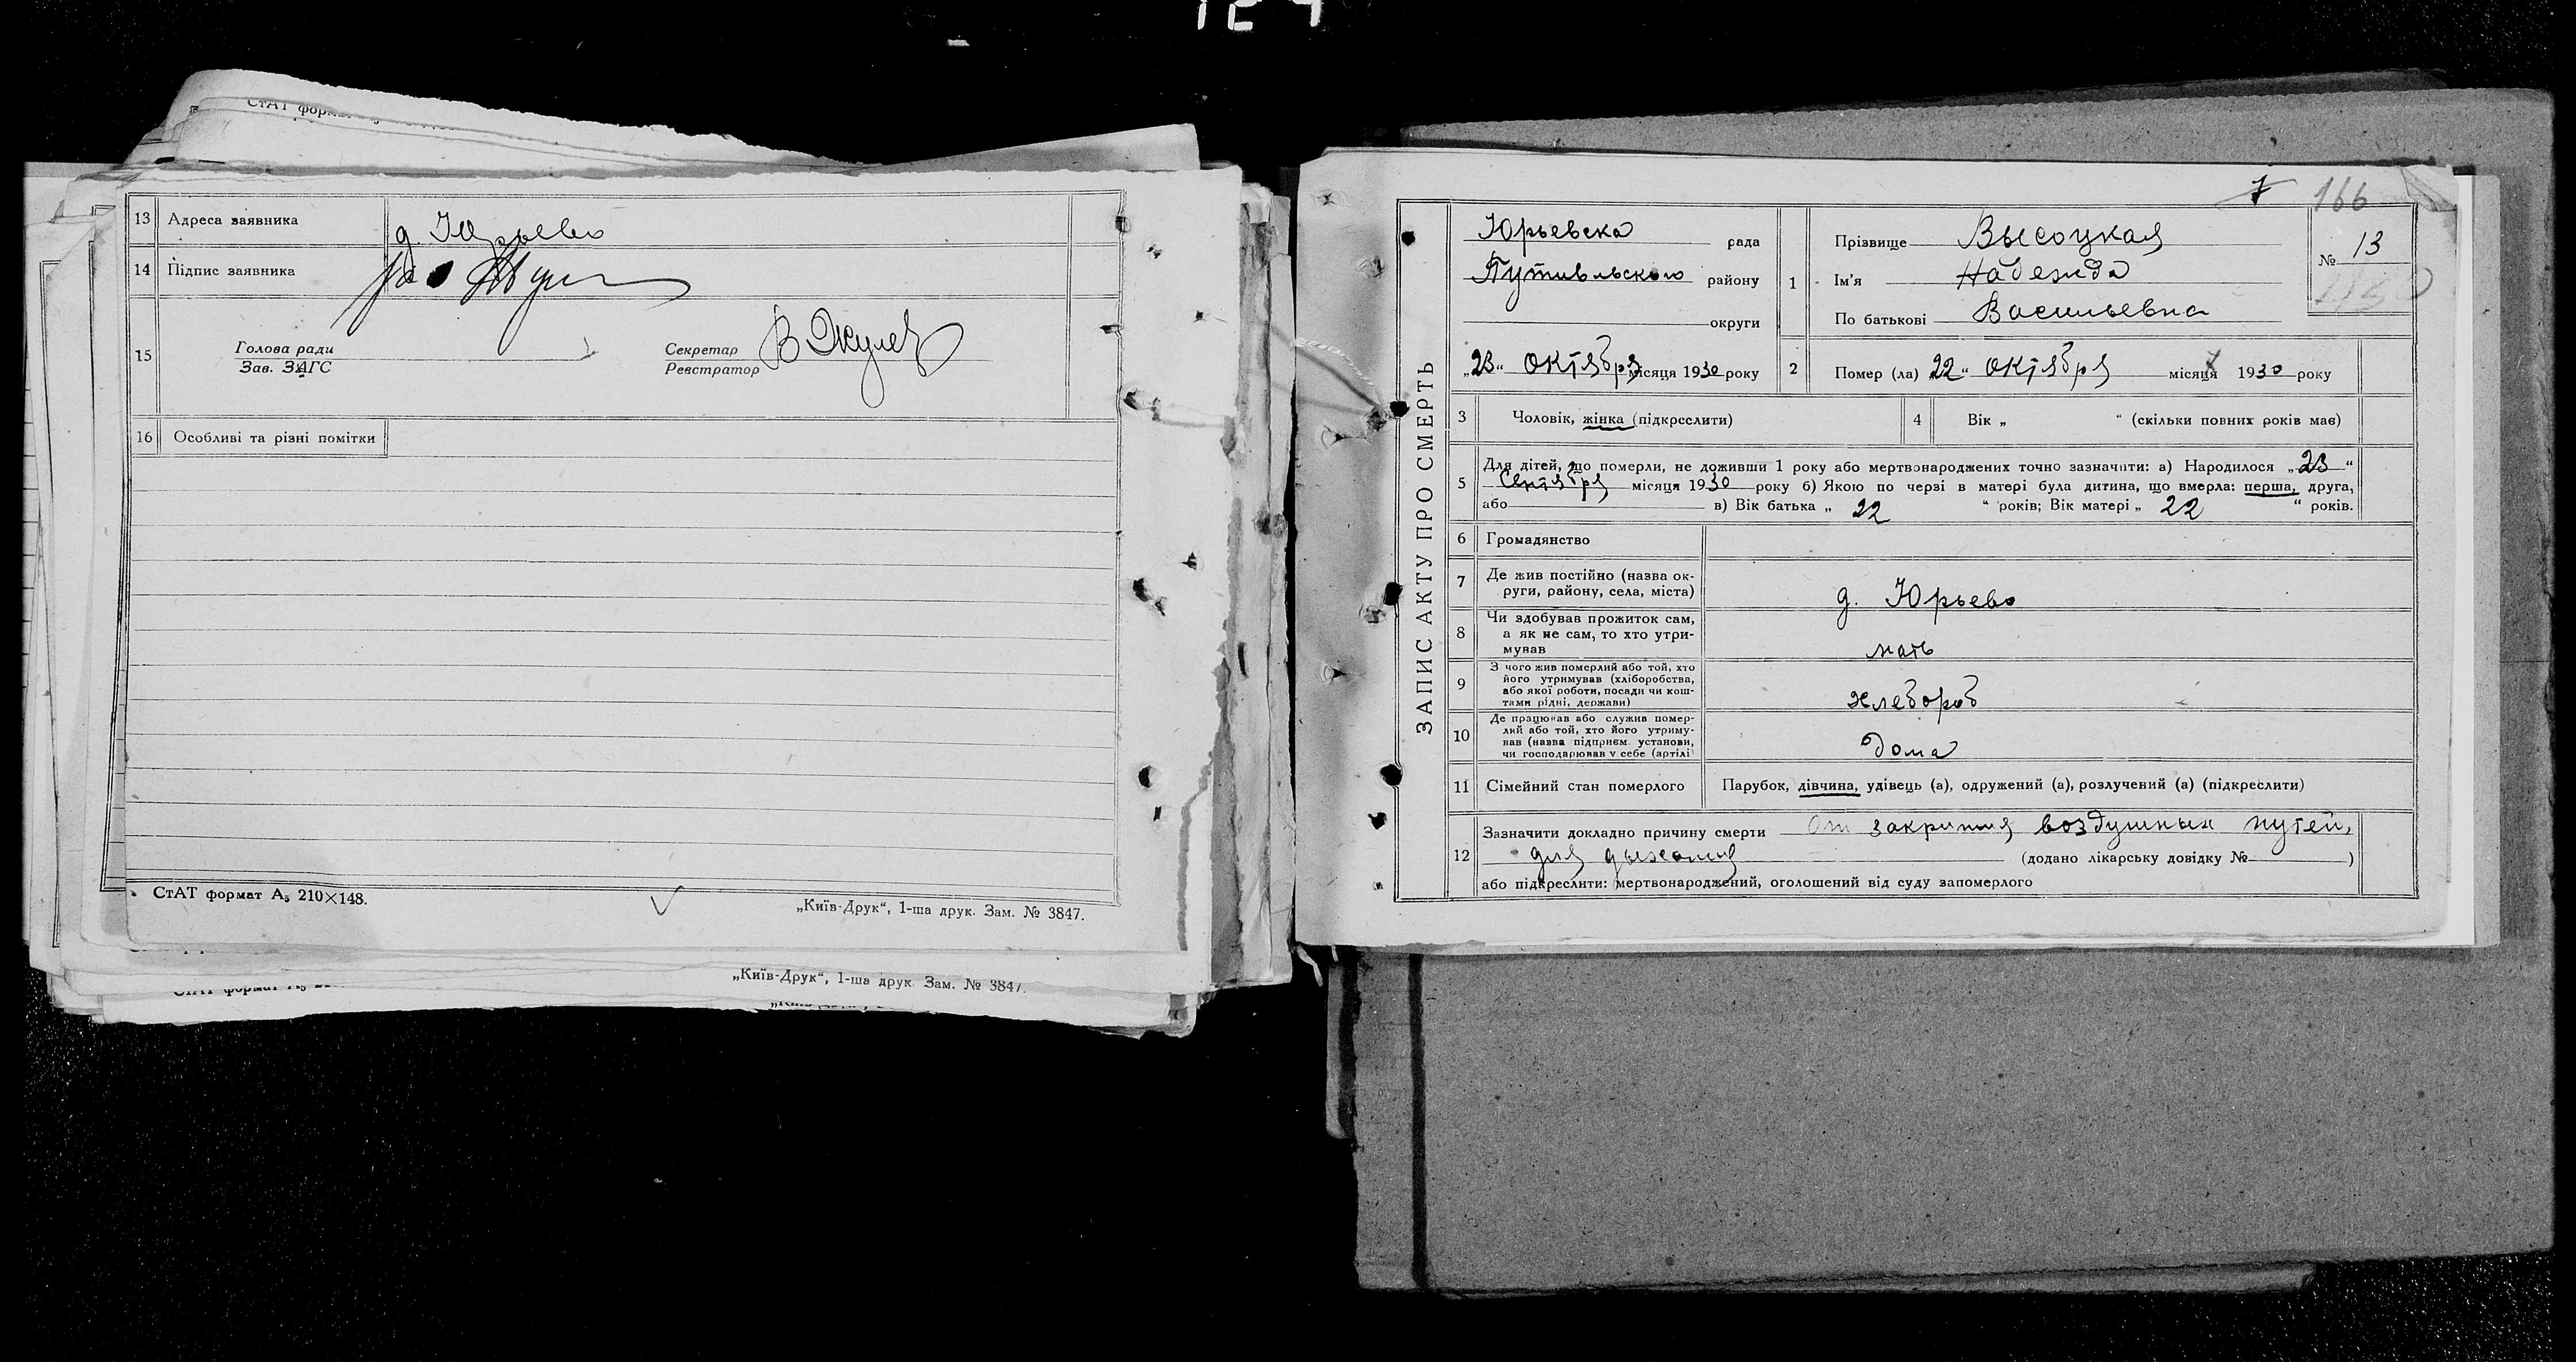 СтАТ форм
13 Адреса заявника д. Юрьево
14 Підпис заявника
15 Голова ради
Зав. ЗАГС
Секретар
Реєстратор
16 Особливі та різні помітки
СтАТ формат А5 210×148.
„Київ-Друк“, 1-ша друк. Зам. № 3847.
„Київ-Друк“, 1-ша друк. Зам. № 3847.
166
ЗАПИС АКТУ ПРО СМЕРТЬ
Юрьевска рада
Путивльского району
округи
„23“ октября місяця 1930 року
1 Прізвище Высоцкая
Ім'я Надежда
По батькові Васильевна
№ 13
2 Помер (ла) „22“ октября місяця 1930 року
3 Чоловік, жінка (підкреслити)
4 Вік „ “ (скільки повних років має)
5 Для дітей, що померли, не доживши 1 року або мертвонароджених точно зазначити: а) Народилося „23“
Сентября місяця 1930 року б) Якою по черзі в матері була дитина, що вмерла: перша, друга,
або в) Вік батька „ 22 “ років; Вік матері „ 22 “ років.
6 Громадянство
7 Де жив постійно (назва ок-
руги, району, села, міста)
д. Юрьево
8 Чи здобував прожиток сам,
а як не сам, то хто утри-
мував
мать
9 З чого жив померлий або той, хто
його утримував (хліборобства,
або якої роботи, посади чи кош-
тами рідні, держави)
хлебороб
10 Де працював або служив помер-
лий або той, хто його утриму-
вав (назва підприєм. установи,
чи господарював у себе (артілі)
дома
11 Сімейний стан померлого Парубок, дівчина, удівець (а), одружений (а), розлучений (а) (підкреслити)
12 Зазначити докладно причину смерти От закрития воздушных путей,
для дыхания (додано лікарську довідку № )
або підкреслити: мертвонароджений, оголошений від суду запомерлого